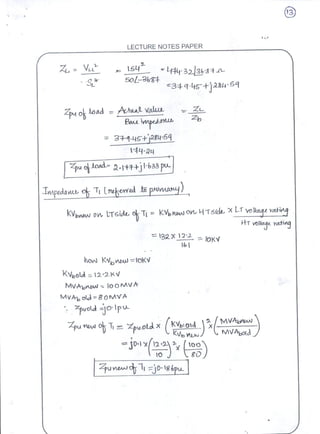 13
LECTURE NOTES PAPER
Z_L = V_LL² / S_L* = 154² / 50∠-36.87 = 474.32∠36.87 Ω
= 379.45 + j284.59
Zpu of load = Actual value / Base impedance = Z_L / Z_b
= 379.45 + j284.59 / 174.24
Zpu of load = 2.177 + j1.633 pu
Impedance of T₁ (referred to primary)
KVbnew on LT side of T₁ = KVbnew on HT side x LT voltage rating / HT voltage rating
= 132 x 12.2 / 161 = 10KV
now KVbnew = 10KV
KVbold = 12.2 KV
MVAbnew = 100 MVA
MVAb old = 80 MVA
∴ Zpuold = j0.1pu
Zpu new of T₁ = Zpuold x (KVbold / KVbnew)² x (MVAbnew / MVAbold)
= j0.1 x (12.2 / 10)² x (100 / 80)
Zpu new of T₁ = j0.186pu